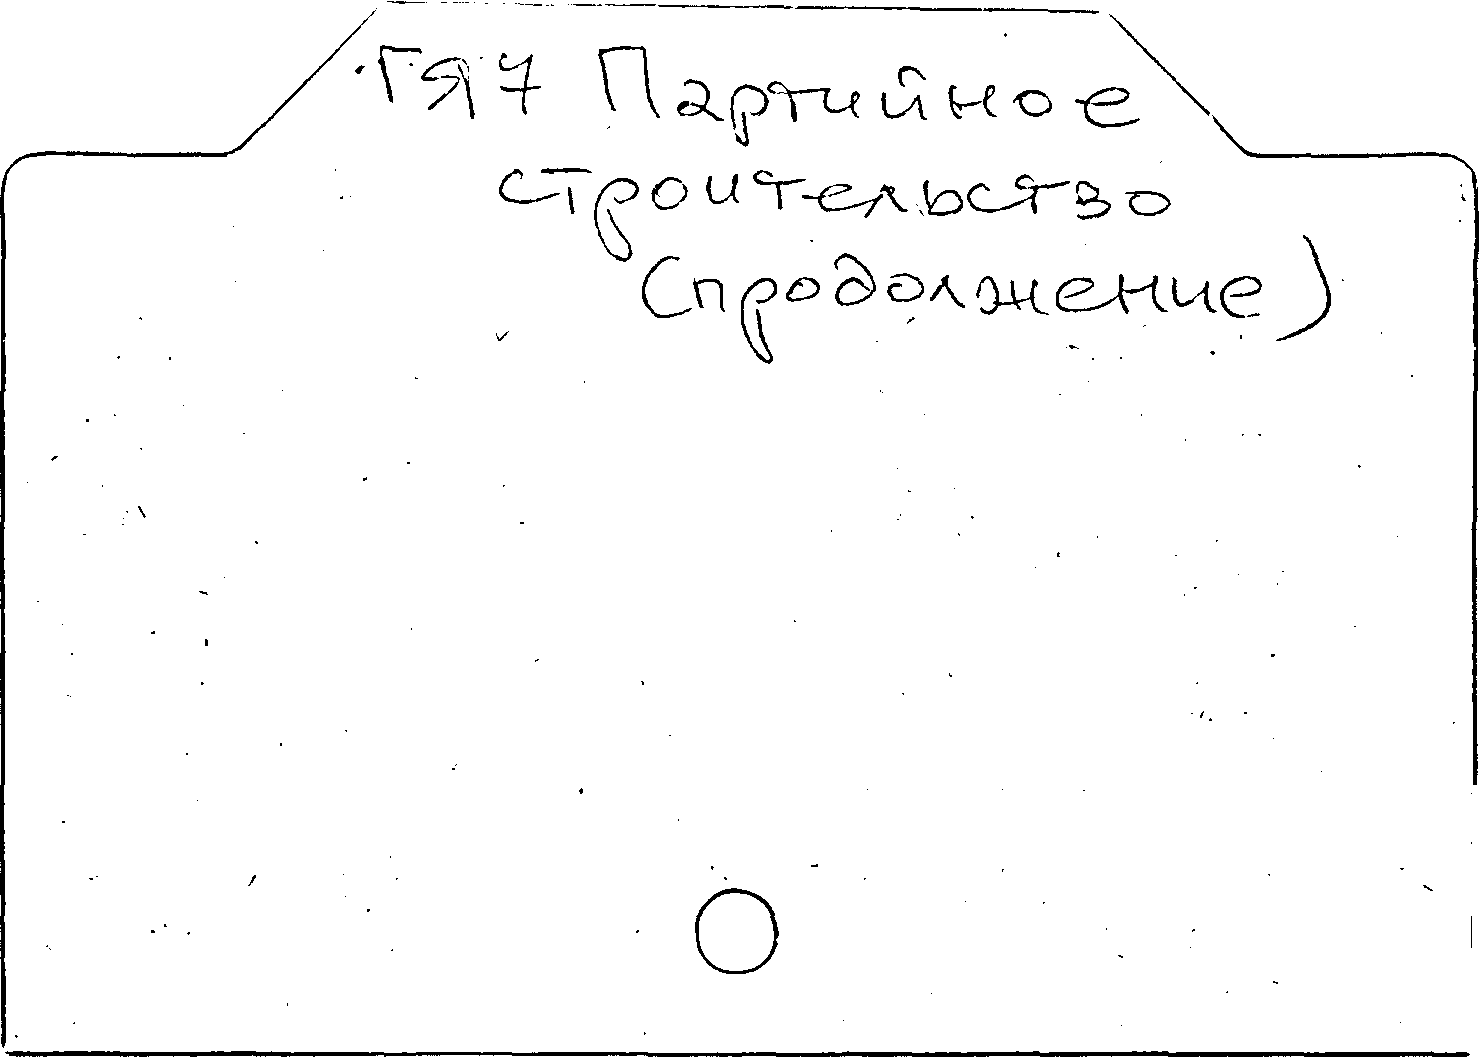 ГЯ7 Партийное
строительство
(продолжение)